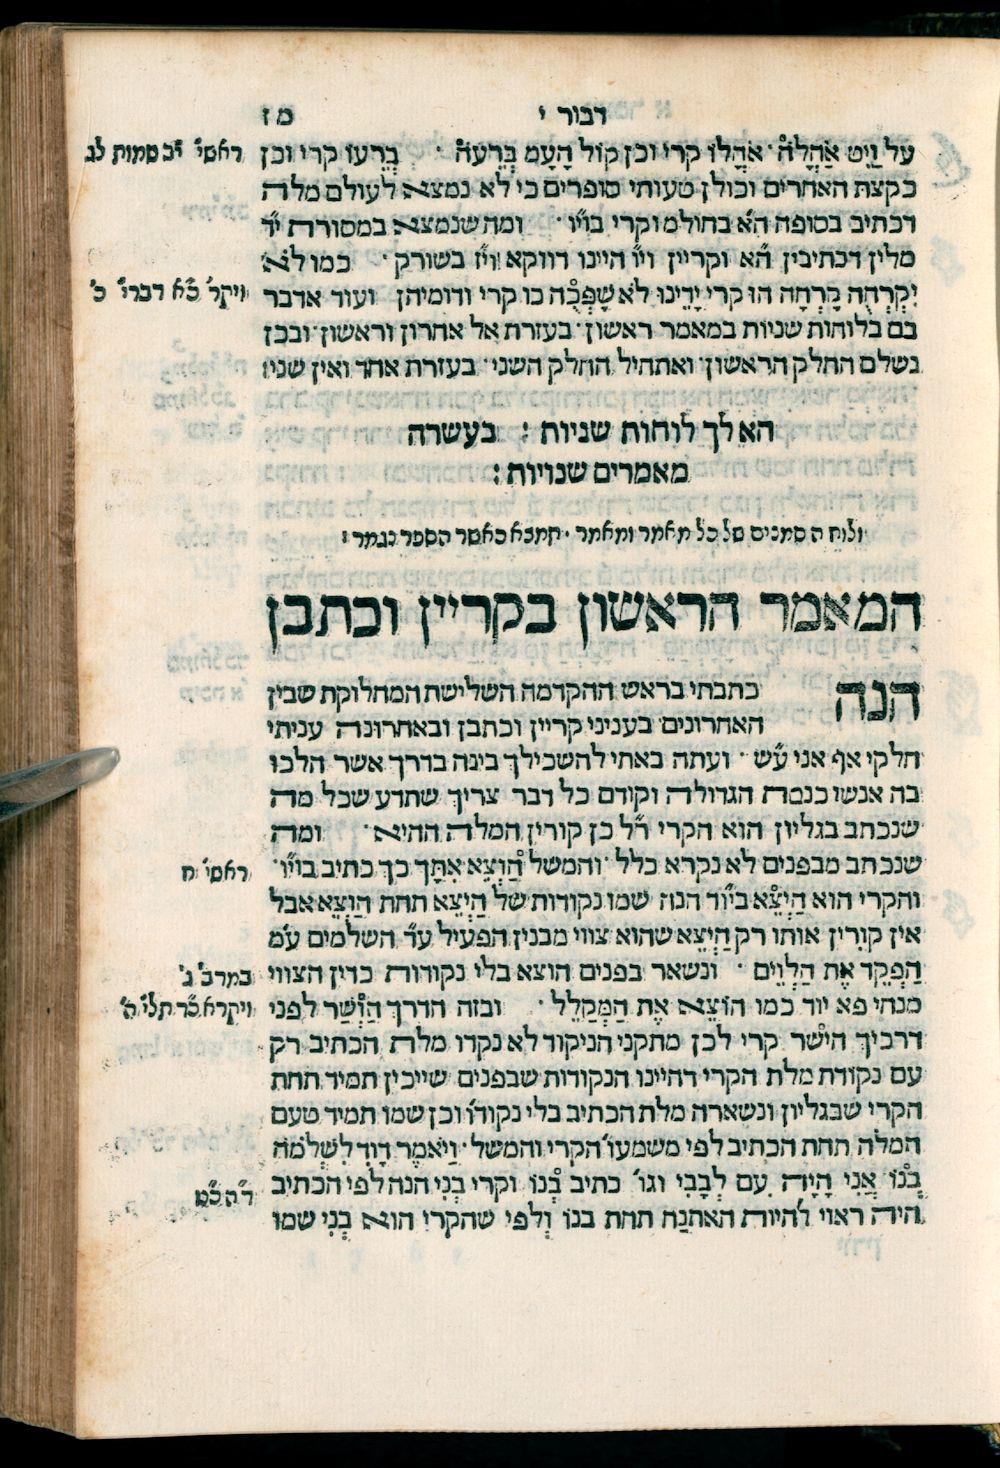 דבור י מז
על וַיֵט אָהֳלֹה׃ אהֳלוֹ קרי וכן קוֹל הָעָם בְּרֵעֹה · בְּרֵעוֹ קרי וכן ראשי׳ יב שמות לב
בקצת האחרים וכולן טעותי סופרים כי לא נמצא לעולם מלה
דכתיב בסופה ה״א בחולם וקרי בוי״ו · ומה שנמצא במסורת י״ד
מלין דכתיבין ה״א וקריין וי״ו היינו דווקא וי״ו בשורק · כמו לא
יִקְרְחֻה קָרְחָה הו קרי יָדֵינוּ לֹא שָׁפְּכֻה כו קרי ודומיהן ועוד אדבר ויקר׳ כ״א דברי׳ כ׳
בם בלוחות שניות במאמר ראשון׃ בעזרת אל אחרון וראשון׃ ובכן
נשלם החלק הראשון׃ ואתחיל החלק השני׃ בעזרת אחד ואין שני׃
האלך לוחות שניות : בעשרה
מאמרים שנויות :
ולוח הסמנים של כל מאמר ומאמר ׃ תמצא כאשר הספר נגמר :
המאמר הראשון בקריין וכתבן
הנה כתבתי בראש ההקדמה השלישת המחלוקת שבין
האחרונים בעניני קריין וכתבן ובאחרונה עניתי
חלקי אף אני ע״ש · ועתה באתי להשכילך בינה בדרך אשר הלכו
בה אנשי כנסת הגדולה וקודם כל דבר צריך שתדע שכל מה
שנכתב בגליון הוא הקרי ר״ל כן קורין המלה ההיא · ומה
שנכתב מבפנים לא נקרא כלל ׃ והמשל הַוְצֵא אִתָּךְ כך כתיב בוי״ו׃ ראשי׳ ח
והקרי הוא הַיְצֵא ביו״ד הנה שמו נקודות של הַיְצֵא תחת הַוְצֵא אבל
אין קורין אותו רק הַיְצֵא שהוא צווי מבנין הפעיל ע״ד השלמים ע״מ
הַפְקֵד אֶת הַלְוִיִם · ונשאר בפנים הוצא בלי נקודות כדין הצווי במרב׳ ג׳
מנחי פא יוד כמו הוֹצֵא אֶת הַמְקַלֵל · ובזה הדרך הַוְשַׁר לפני ויקרא כ״ד תלי׳ ה׳
דרכיך הישר קרי לכן מתקני הניקוד לא נקדו מלת הכתיב רק
עם נקודת מלת הקרי דהיינו הנקודות שבפנים שייכין תמיד תחת
הקרי שבגליון ונשארה מלת הכתיב בלי נקוד׃ וכן שמו תמיד טעם
המלה תחת הכתיב לפי משמעו׳ הקרי והמשל ׃ וַיֹאמֶר דָוִד לִשְׁלֹמֹה
בְּנוֹ אֲנִי הָיָה עִם לְבָבִי וגו׳ כתיב בְּנוֹ וקרי בְּנִי הנה לפי הכתיב ד״ה כ״ט
היה ראוי להיות האתנח תחת בנו וְלפי שהקרי הוא בְּנִי שמו